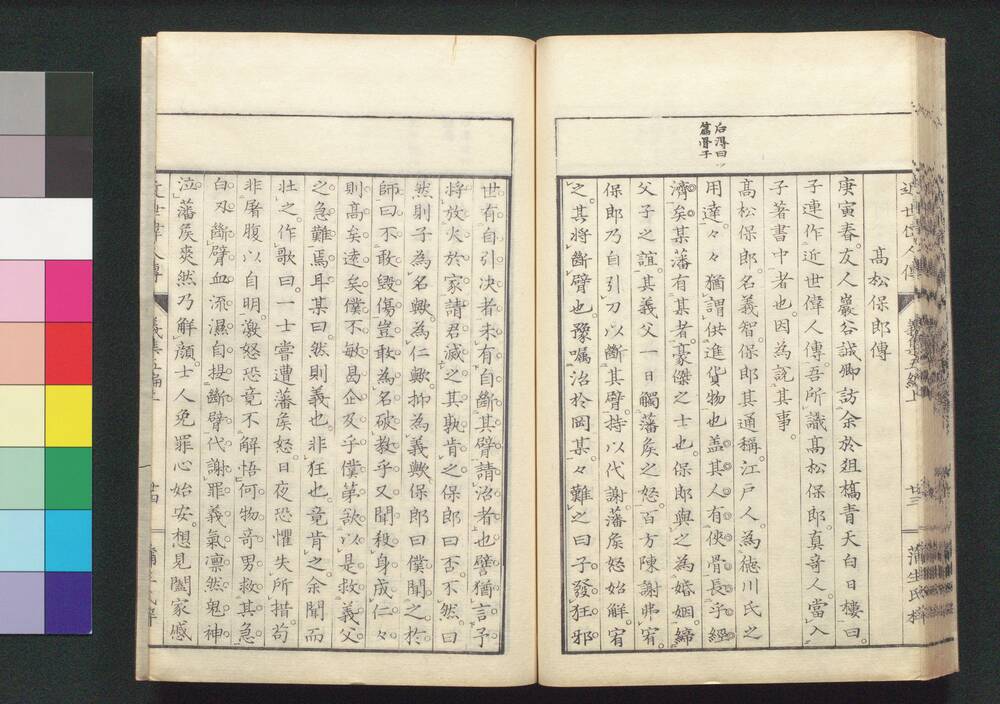 近世偉人傳 義集五編上 廿三 蒲生氏梓
石潭曰
篇骨子
高松保郎傳
庚寅春。友人巖谷誠卿訪余於狙橋青天白日樓。曰。
子連作近世偉人傳。吾所識高松保郎。真奇人。當入
子著書中者也。因為説其事。
高松保郎。名義智。保郎其通稱。江戸人。為徳川氏之
用達。々々猶謂供進貨物也。盖其人有俠骨。長乎經
濟矣。某藩有某者。豪傑之士也。保郎與之為婚姻。締
父子之誼。其義父一日觸藩矦之怒。百方陳謝弗宥。
保郎乃自引刀以斷其臂。持以代謝。藩矦怒始解。宥
之。其將斷臂也。豫囑治於岡某。々難之曰。子發狂邪。
世有自引決者。未有自斷其臂請治者也。譬猶言予
將放火於家。請君滅之。其孰肯之。保郎曰。否。不然。曰。
然則子為名歟。為仁歟。抑為義歟。保郎曰。僕聞之於
師。曰。不敢毀傷。豈敢為名破教乎。又聞殺身成仁。々
則高矣遠矣。僕不敏。曷企及乎。僕第敢以是救義父
之急難焉耳。某曰。然則義也。非狂也。竟肯之。余聞而
壮之。作歌曰。一士嘗遭藩矦怒。日夜恐懼失所措。苟
非屠腹以自明。激怒恐竟不解悟。何物奇男救其急。
白刃斷臂血流濕。自提斷臂代謝罪。義氣凛然鬼神
泣。藩矦爽然乃解顔。士人免罪心始安。想見闔家感
近世偉人傳 義集五編上 廿四 蒲生氏梓